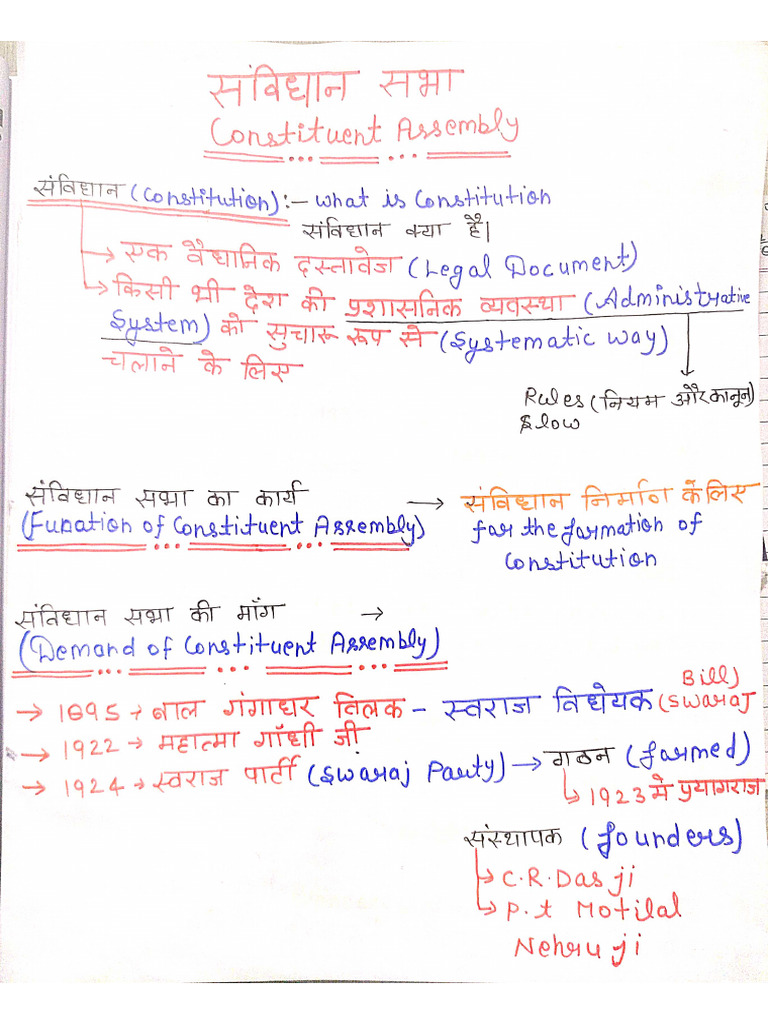 संविधान सभा
Constituent Assembly
संविधान (Constitution) :- What is Constitution
संविधान क्या है|
→ एक वैधानिक दस्तावेज (Legal Document)
→ किसी भी देश की प्रशासनिक व्यवस्था (Administrative
System) को सुचारू रूप से (Systematic way)
चलाने के लिए
Rules (नियम और कानून)
& low
संविधान सभा का कार्य → संविधान निर्माण के लिए
(Funation of Constituent Assembly) for the formation of
Constitution
संविधान सभा की माँग →
(Demand of Constituent Assembly)
→ 1895 → बाल गंगाधर तिलक - स्वराज विधेयक (Swaraj
Bill)
→ 1922 → महात्मा गाँधी जी
→ 1924 → स्वराज पार्टी (Swaraj Party) → गठन (formed)
→ 1923 मे प्रयागराज
संस्थापक (founders)
→ C.R.Das ji
→ P.t Motilal
Nehru ji